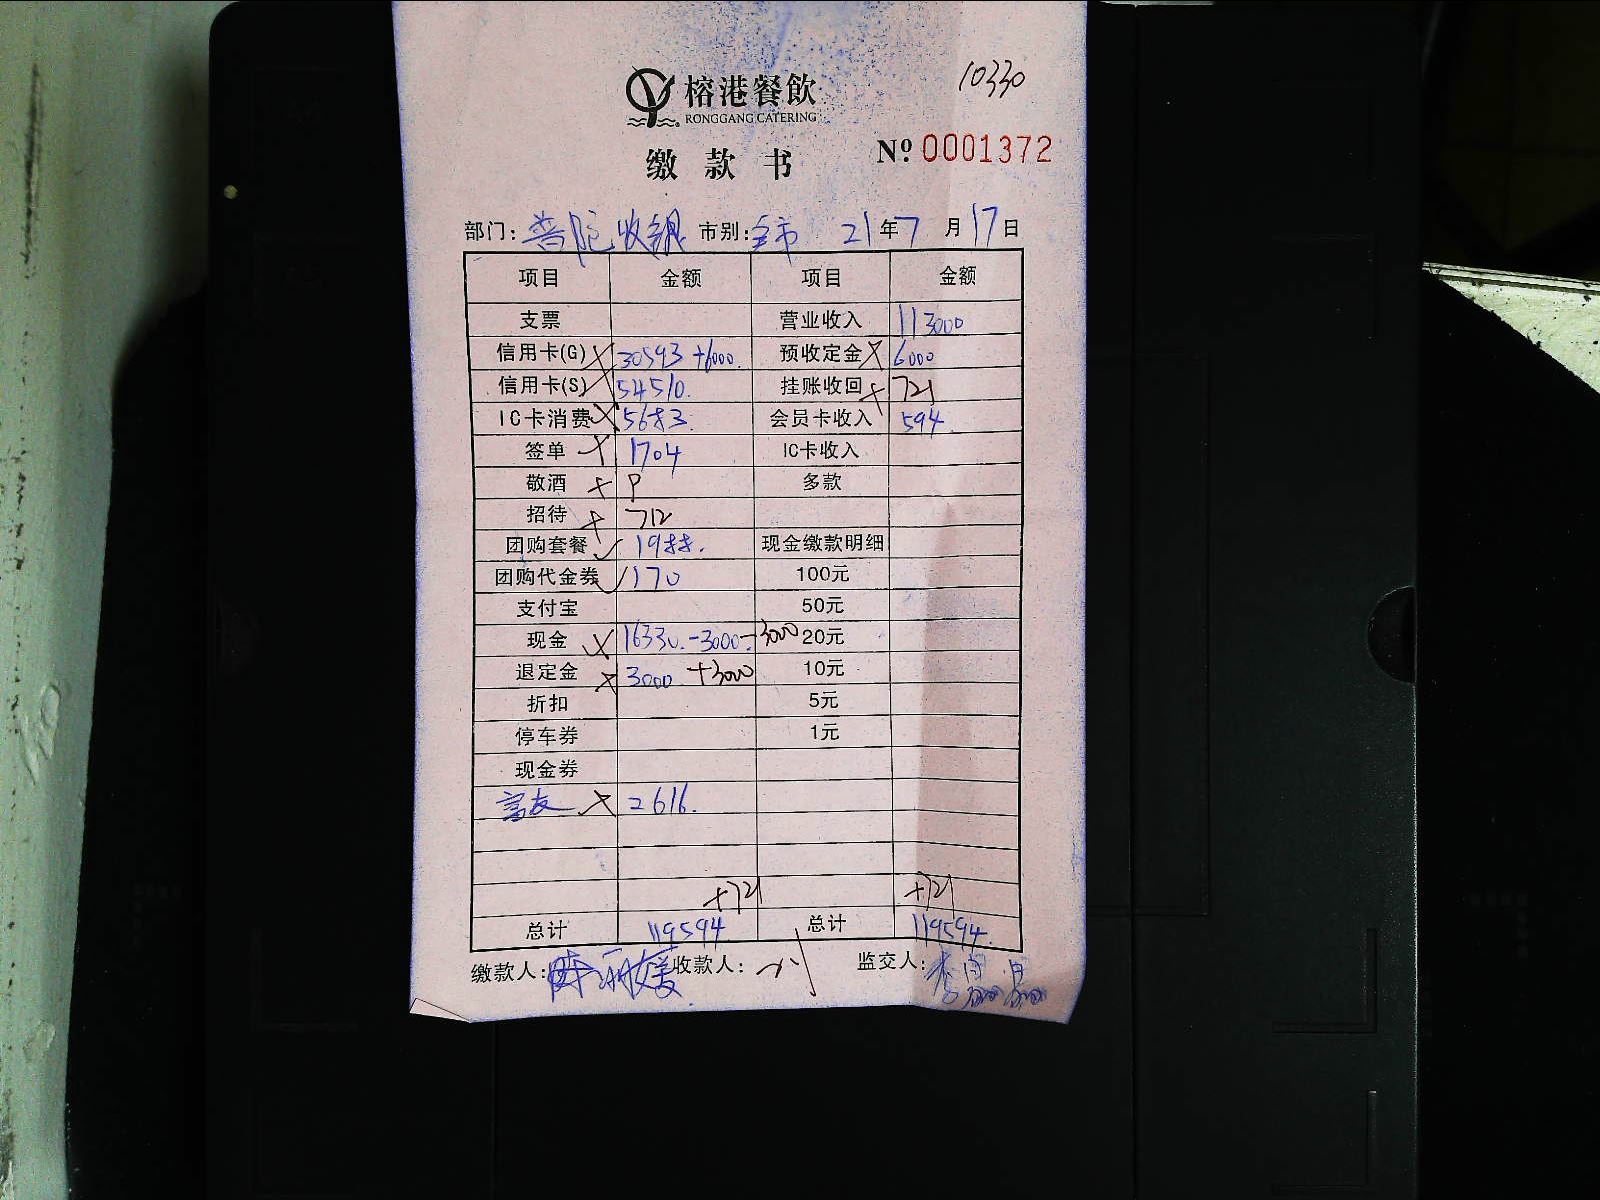 10330
榕港餐飲
RONGGANG CATERING
缴款书 Nº 0001372
部门: 普陀收银 市别: 全市 21年7月17日
项目 金额 项目 金额
支票 营业收入 113000
信用卡(G) 30593+6000. 预收定金 6000
信用卡(S) 54510. 挂账收回 721
IC卡消费 5683. 会员卡收入 594.
签单 1704 IC卡收入
敬酒 多款
招待 712
团购套餐 1988. 现金缴款明细
团购代金券 170 100元
支付宝 50元
现金 16330.-3000-3000 20元
退定金 3000+3000 10元
折扣 5元
停车券 1元
现金券
富友 2616.
+721 +721
总计 119594 总计 119594.
缴款人: 陈丽媛 收款人: 监交人: 李